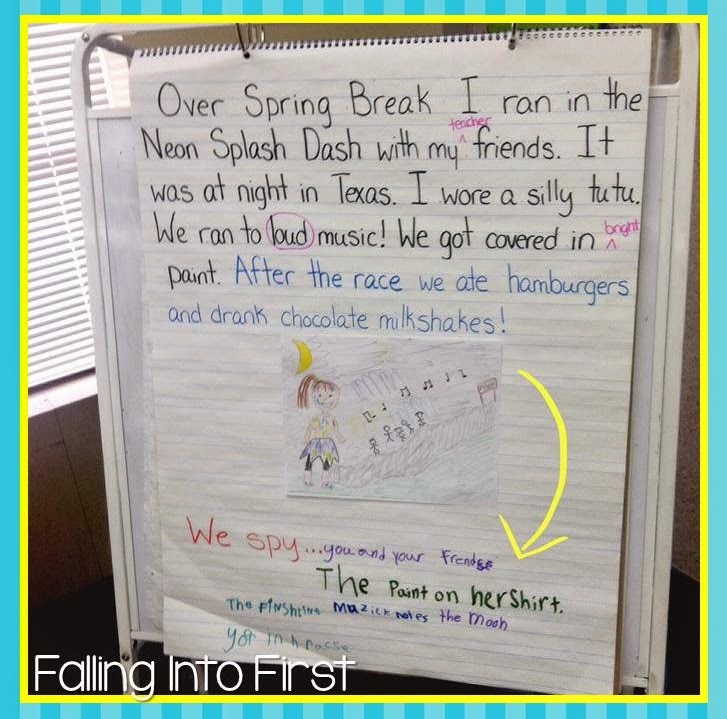 Over Spring Break I ran in the
teacher
Neon Splash Dash with my ^ friends. It
was at night in Texas. I wore a silly tutu.
We ran to loud music! We got covered in ^
bright
paint. After the race we ate hamburgers
and drank chocolate milkshakes!
We spy...you and your
The Paint on her shirt.
The Muzick notes the moon
Falling Into First